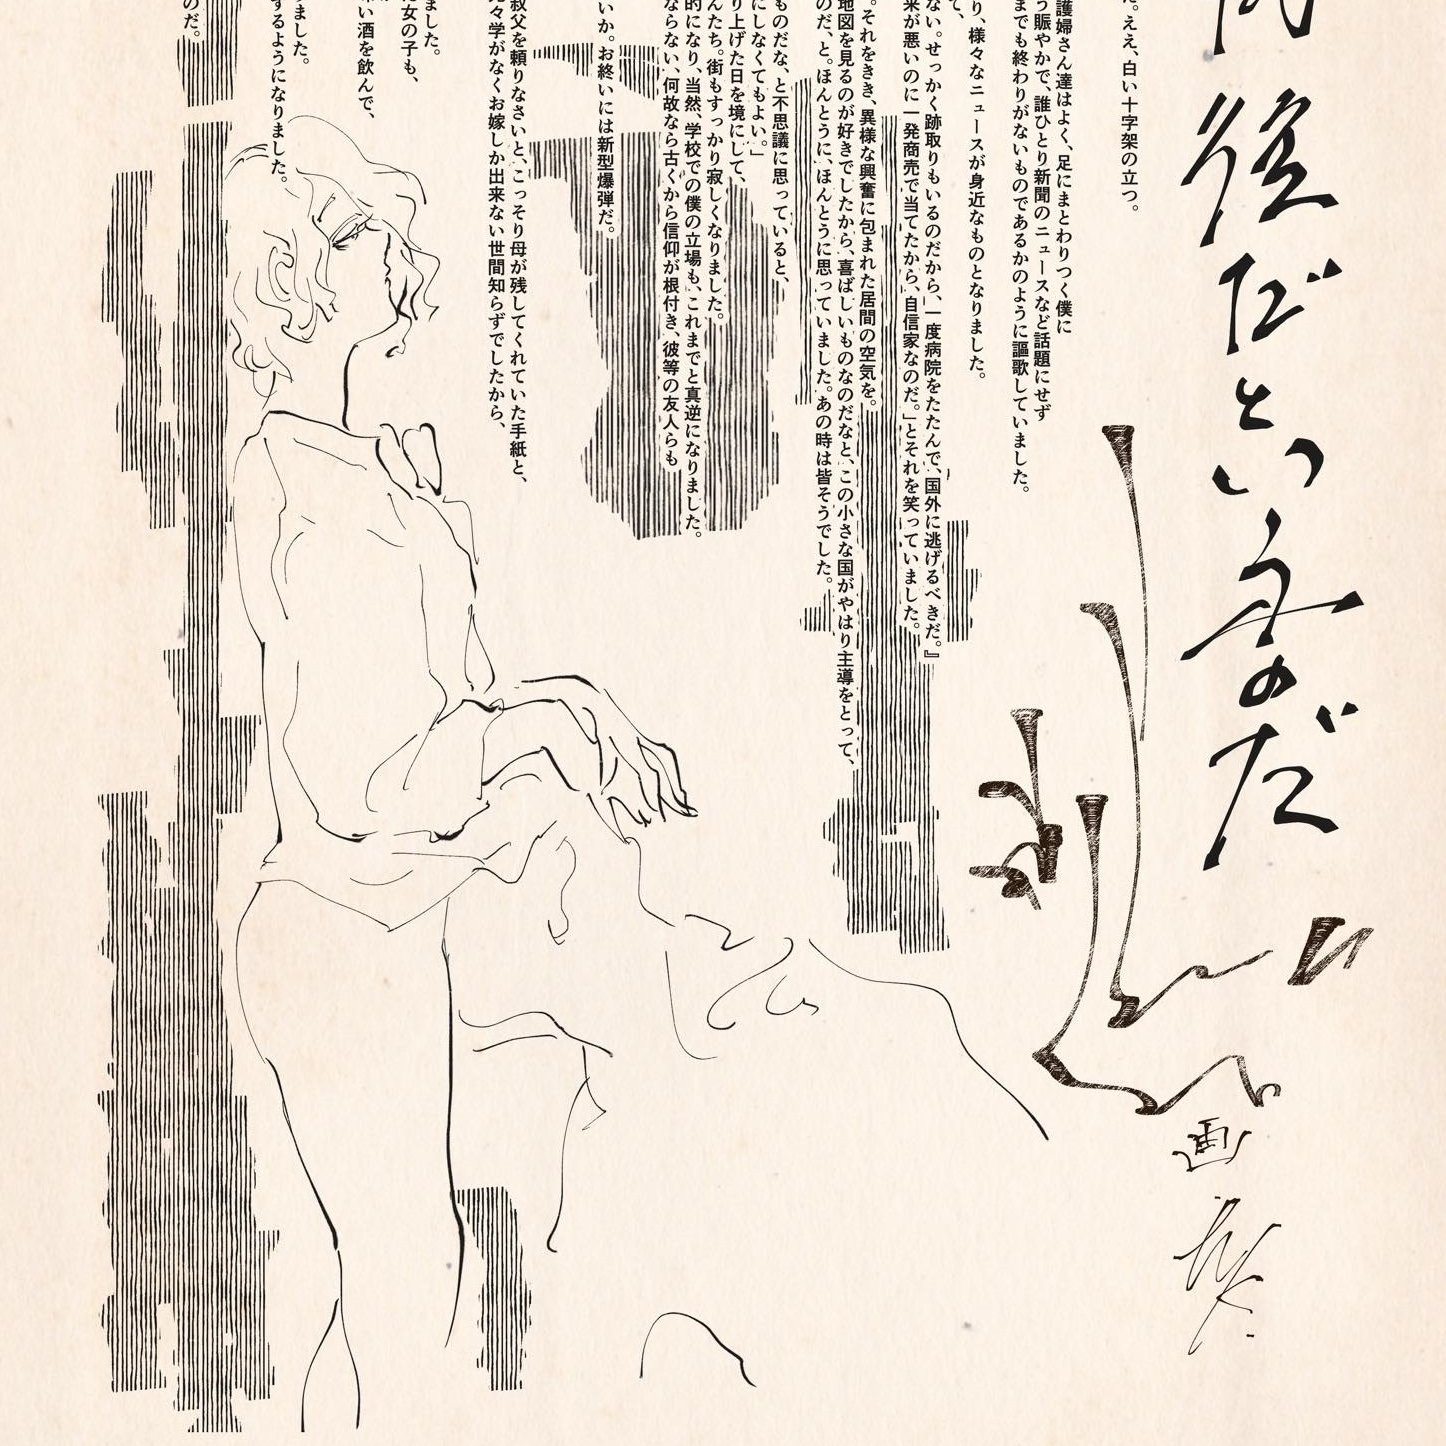 後だという毎のだ
た。ええ、白い十字架の立つ。
護婦さん達はよく、足にまとわりつく僕に
う賑やかで、誰ひとり新聞のニュースなど話題にせず
までも終わりがないものであるかのように謳歌していました。
り、様々なニュースが身近なものとなりました。
て、
ない。せっかく跡取りもいるのだから、一度病院をたたんで、国外に逃げるべきだ。』
来が悪いのに一発商売で当てたから、自信家なのだ。」とそれを笑っていました。
。それをきき、異様な興奮に包まれた居間の空気を。
地図を見るのが好きでしたから、喜ばしいものなのだなと、この小さな国がやはり主導をとって、
のだ、と。ほんとうに、ほんとうに思っていました。あの時は皆そうでした。
ものだな、と不思議に思っていると、
にしなくてもよい。」
り上げた日を境にして、
んたち。街もすっかり寂しくなりました。
的になり、当然、学校での僕の立場も、これまでと真逆になりました。
ならない、何故なら古くから信仰が根付き、彼等の友人らも
いか。お終いには新型爆弾だ。
叔父を頼りなさいと、こっそり母が残してくれていた手紙と、
元々学がなくお嫁しか出来ない世間知らずでしたから、
ました。
た女の子も、
い酒を飲んで、
りました。
するようになりました。
のだ。
画